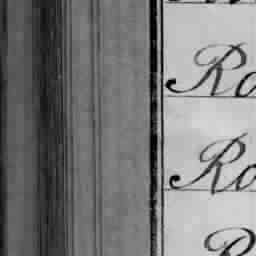 Ro
Ro
R